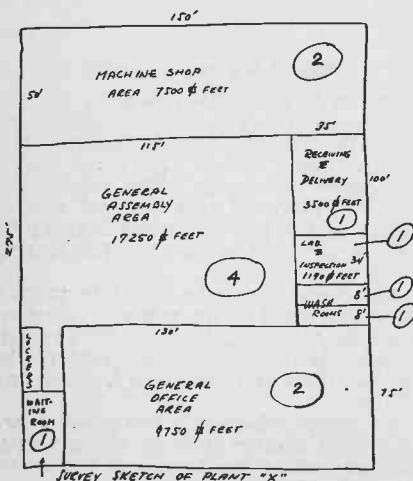 150'
MACHINE SHOP
AREA 7500 ⌀ FEET
2
50'
35'
115'
RECEIVING
&
DELIVERY
3500 ⌀ FEET
1
100'
GENERAL
ASSEMBLY
AREA
17250 ⌀ FEET
4
275'
LAB.
&
INSPECTION 34'
1190 ⌀ FEET
1
WASH
ROOMS
8'
1
8'
1
130'
LOCKERS
WAIT-
ING
ROOM
1
GENERAL
OFFICE
AREA
9750 ⌀ FEET
2
75'
SURVEY SKETCH OF PLANT "X"